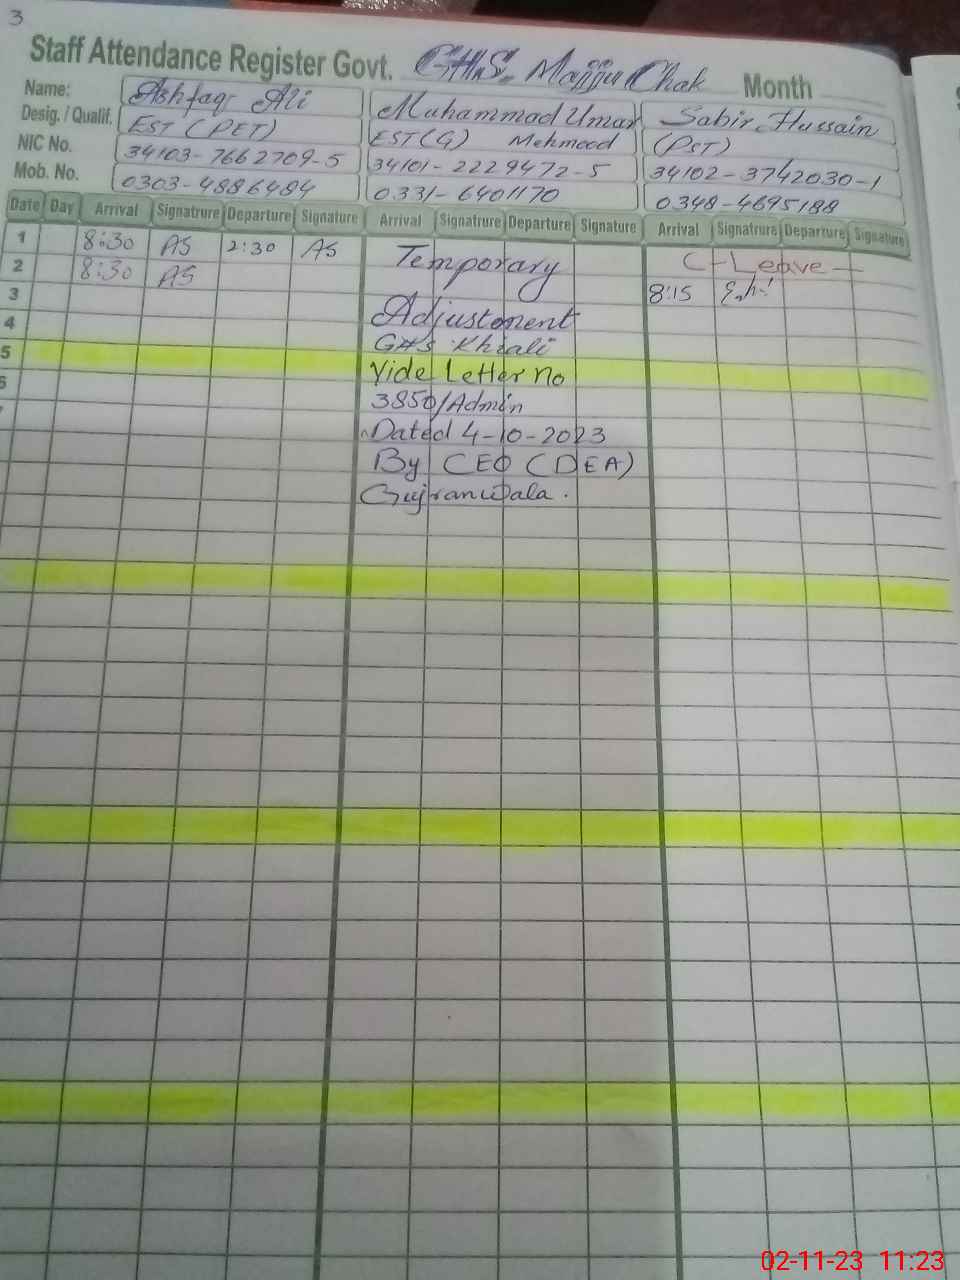 3
Staff Attendance Register Govt. G.H.S. Majju Chak Month
Name: Ashfaq Ali Muhammad Umar Sabir Hussain
Desig. / Qualif. EST (PET) EST (G) Mehmood (PST)
NIC No. 34103-7662709-5 34101-2229472-5 34102-3742030-1
Mob. No. 0303-4886484 0331-6401170 0348-4695188
Date Day Arrival Signatrure Departure Signature Arrival Signatrure Departure Signature Arrival Signatrure Departure Signature
1 8:30 AS 2:30 AS Temporary C-Leave
2 8:30 AS 8:15
3 Adjustement
4 GHS Khiali
5 Vide Letter No
6 3850/Admin
Dated 4-10-2023
By CEO (DEA)
Gujranwala.
02-11-23 11:23